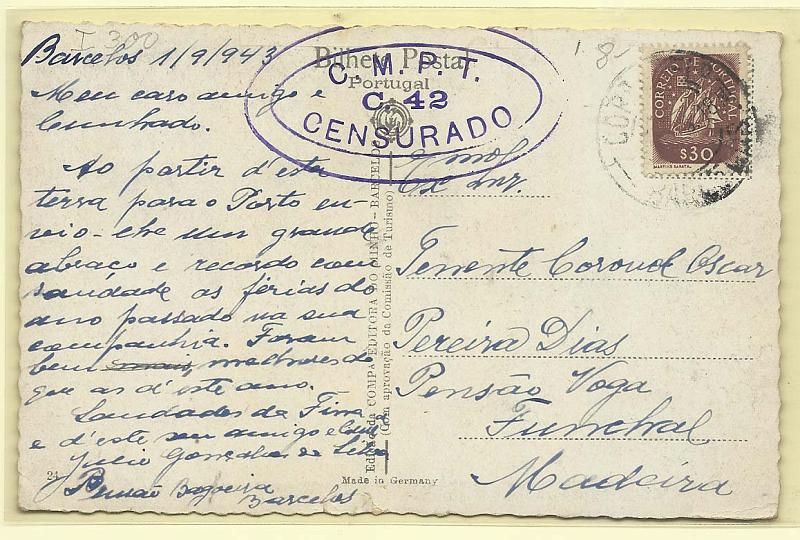 I 300
Barcelos 1/9/943
Meu caro amigo e
Cunhado.
Ao partir d'esta
terra para o Porto en-
vio-lhe um grande
abraço e recordo com
saudade as férias do
ano passado na sua
companhia. Foram
bem melhores do
que as d'este ano.
Saudades da Firma
e d'este seu amigo e
Julio Gonçalves da
Pensão Bagoeira
Barcelos
24
Bilhete Postal
Portugal
C. M. P. T.
C. 42
CENSURADO
Edição da COMPA. EDITORA DO MINHO — BARCELOS
(Com aprovação da Comissão de Turismo)
Made in Germany
1.8
CORREIO DE PORTUGAL
$30
MARTINS BARATA
Exmo.
Ex Snr.
Tenente Coronel Oscar
Pereira Dias
Pensão Voga
Funchal
Madeira